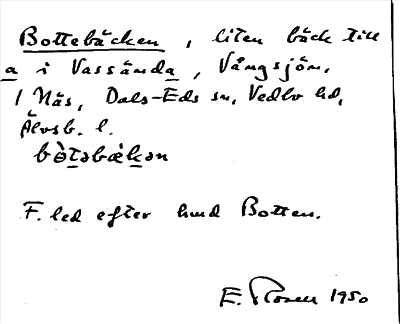 Bottebäcken, liten bäck till
a i Vassända, Vångsjön,
1 Näs, Dals-Eds sn, Vedbo hd,
Älvsb. l.
bòt̲əbæ̀k̲ən
F. led efter hund Botten.
E. Rosell 1950